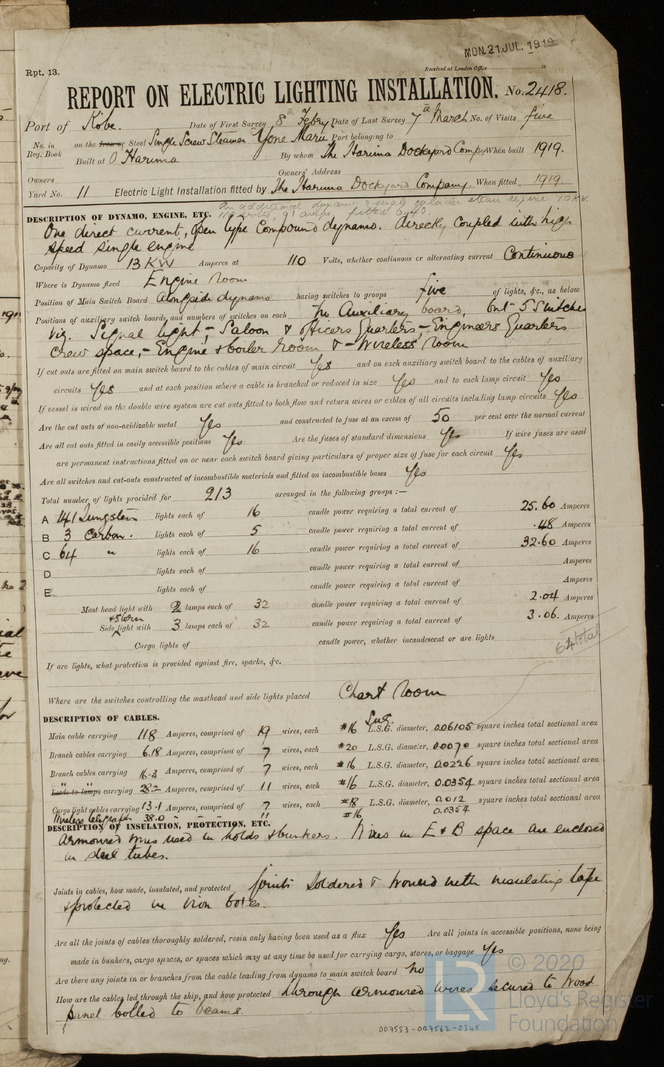 MON. 21 JUL. 1919
Rpt. 13.
Received at London Office
REPORT ON ELECTRIC LIGHTING INSTALLATION. No. 2418.
Port of Kobe. Date of First Survey 8th Febry Date of Last Survey 7th March No. of Visits five
No. in Reg. Book on the Iron or Steel Single Screw Steamer Yone Maru Port belonging to
Built at Harima By whom The Harima Dockyard Compy When built 1919.
Owners Owners' Address
Yard No. 11 Electric Light Installation fitted by The Harima Dockyard Company. When fitted 1919
An additional dynamo & single cylinder steam engine 10 KW.
110 volts, 91 amps, fitted
DESCRIPTION OF DYNAMO, ENGINE, ETC.
One direct current, open type Compound dynamo. directly coupled with high
speed single engine
Capacity of Dynamo 13 KW Amperes at 110 Volts, whether continuous or alternating current Continuous
Where is Dynamo fixed Engine room
Position of Main Switch Board alongside dynamo having switches to groups five of lights, &c., as below
Positions of auxiliary switch boards and numbers of switches on each No Auxiliary board, but 5 Switches
viz. Signal light,- Saloon & officers Quarters,- Engineers Quarters
crew space,- Engine & boiler room & - Wireless room
If cut outs are fitted on main switch board to the cables of main circuit Yes and on each auxiliary switch board to the cables of auxiliary
circuits Yes and at each position where a cable is branched or reduced in size Yes and to each lamp circuit Yes
If vessel is wired on the double wire system are cut outs fitted to both flow and return wires or cables of all circuits including lamp circuits Yes
Are the cut outs of non-oxidizable metal Yes and constructed to fuse at an excess of 50 per cent over the normal current
Are all cut outs fitted in easily accessible positions Yes Are the fuses of standard dimensions Yes If wire fuses are used
are permanent instructions fitted on or near each switch board giving particulars of proper size of fuse for each circuit Yes
Are all switches and cut-outs constructed of incombustible materials and fitted on incombustible bases Yes
Total number of lights provided for 213 arranged in the following groups :—
A 141 Tungsten lights each of 16 candle power requiring a total current of 25.60 Amperes
B 3 Carbon. lights each of 5 candle power requiring a total current of .48 Amperes
C 64 " lights each of 16 candle power requiring a total current of 32.60 Amperes
D lights each of candle power requiring a total current of Amperes
E lights each of candle power requiring a total current of Amperes
Mast head light with 2 lamps each of 32 candle power requiring a total current of 2.04 Amperes
& Stern
Side light with 3 lamps each of 32 candle power requiring a total current of 3.06. Amperes
Cargo lights of candle power, whether incandescent or arc lights
64 total
If arc lights, what protection is provided against fire, sparks, &c.
Where are the switches controlling the masthead and side lights placed Chart room
DESCRIPTION OF CABLES.
Main cable carrying 118 Amperes, comprised of 19 wires, each #16 L.S.G. diameter, 0.06105 square inches total sectional area
Branch cables carrying 6.18 Amperes, comprised of 7 wires, each #20 L.S.G. diameter, 0.0070 square inches total sectional area
Branch cables carrying 16.3 Amperes, comprised of 7 wires, each #16 L.S.G. diameter, 0.0226 square inches total sectional area
Leads to lamps carrying 28.2 Amperes, comprised of 11 wires, each #16 L.S.G. diameter, 0.0354 square inches total sectional area
Cargo light cables carrying 13.1 Amperes, comprised of 7 wires, each #18 L.S.G. diameter, 0.012 square inches total sectional area
Wireless telegraph 38.0 " 11 #16 0.0354
DESCRIPTION OF INSULATION, PROTECTION, ETC.
Armoured wires used in holds & bunkers. Wires in E & B space are enclosed
in steel tubes.
Joints in cables, how made, insulated, and protected Joints Soldered & wound with insulating tape
& protected in iron boxes.
Are all the joints of cables thoroughly soldered, resin only having been used as a flux Yes Are all joints in accessible positions, none being
made in bunkers, cargo spaces, or spaces which may at any time be used for carrying cargo, stores, or baggage Yes
Are there any joints in or branches from the cable leading from dynamo to main switch board No
How are the cables led through the ship, and how protected through armoured wires secured to wood
panel bolted to beams
007553-007562-0345
LR
© 2020
Lloyd's Register
Foundation